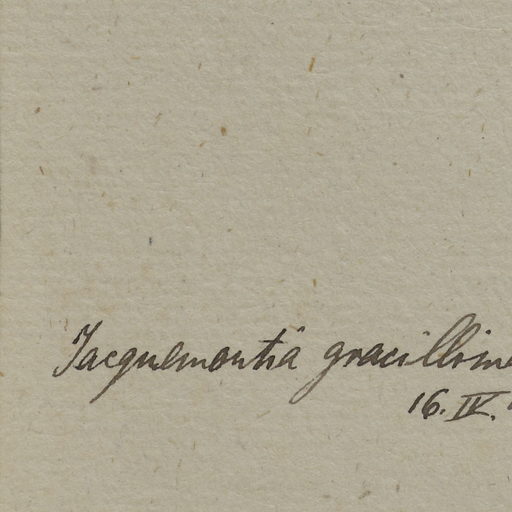 Jacquemontia gracillima
16. IV.